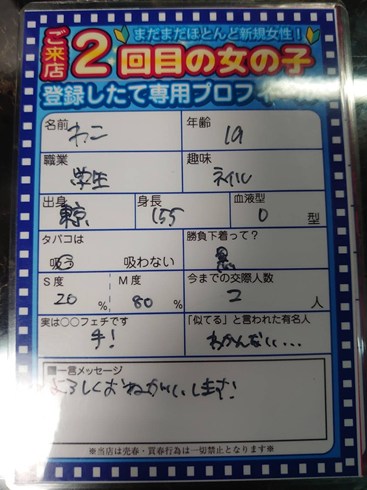 まだまだほとんど新規女性!
ご来店2回目の女の子
登録したて専用プロフィール
名前 わこ 年齢 19
職業 学生 趣味 ネイル
出身 東京 身長 155 血液型 O 型
タバコは 吸う 吸わない 勝負下着って? 黒
S度 20 % M度 80 % 今までの交際人数 2 人
実は○○フェチです 手! 「似てる」と言われた有名人 わかんない…
■一言メッセージ
よろしくおねがいします!
※当店は売春・買春行為は一切禁止となります※